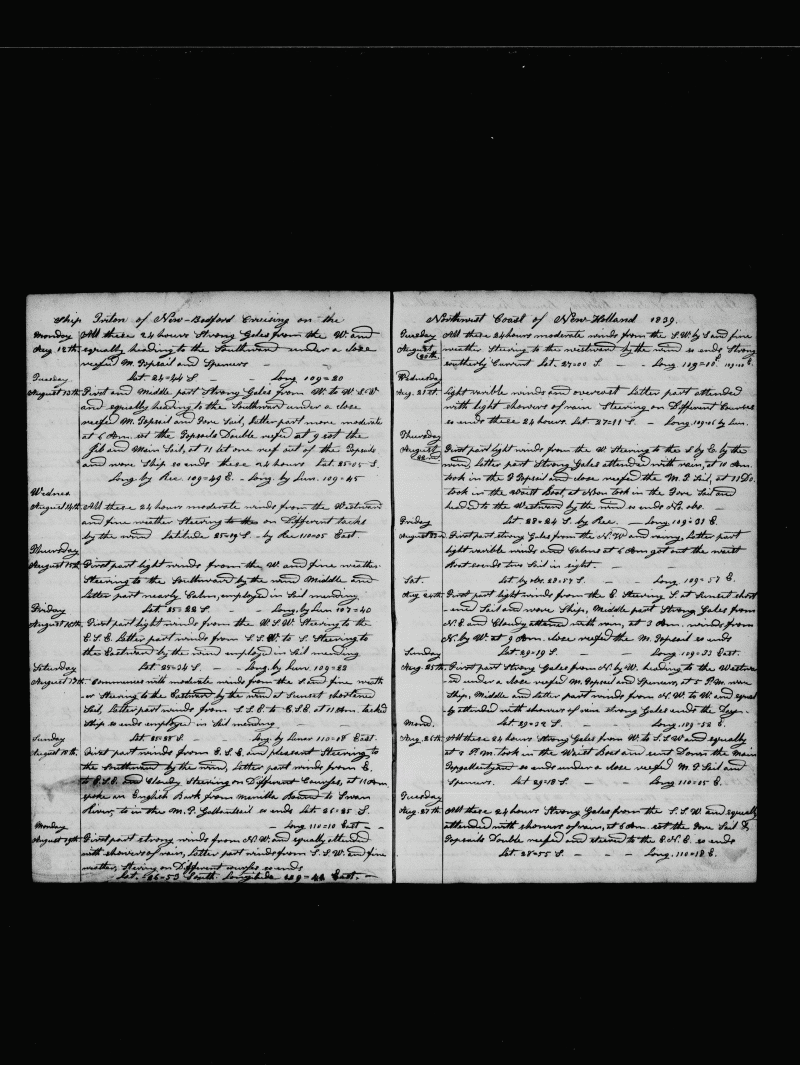 Ship Triton of New-Bedford Cruising on the
Monday All these 24 hours Strong Gales from the W. and
Aug 12th equally heading to the Southward under a close
reefed M. Topsail and Spencers -
Tuesday Lat. 24=44 S - - Long 109=20
August 13th First and Middle part Strong Gales from W. to W.S.W
and equally heading to the Southward under a close
reefed M. Topsail and Fore Sail, Latter part more moderate
at 6 Am. set the Topsails Double reefed at 9 set the
Jib and Main Sail, at 11 let one reef out of the Topsails
and wore Ship so ends these 24 hours Lat. 25=15 S.
Long. by Rec. 109=49 E. - Long. by Lun. 109=45
Wednes
August 14th All these 24 hours moderate winds from the Westward
and fine weather Steering on Different tacks
by the wind Latitude 25=19 S. - by Rec 110=05 East.
Thursday
August 15th First part light winds from the W. and fine weather
Steering to the Southward by the wind Middle and
Latter part nearly Calm, employed in Sail mending
Friday Lat 25=22 S. - - Long. by Lun 107=40
August 16th First part light winds from the W.S.W. Steering to the
E.S.E. Latter part winds from S.S.W. to S. Steering to
the Eastward by the wind employed in Sail mending
Saturday Lat. 25=34 S. - Long. by Lun. 109=22
August 17th Commences with moderate winds from the S. and fine weath
er Steering to the Eastward by the wind at Sunset shortened
Sail, Latter part winds from S.S.E. to E.S.E. at 11 Am. tacked
Ship so ends employed in Sail mending
Sunday Lat. 25=35 S. - Long. by Lunar 110=18 East.
August 18th First part winds from E.S.E. and pleasant Steering to
the Southward by the wind, Latter part winds from E.
to E.S.E. and Cloudy Steering on Different Courses, at 11 Am.
spoke an English Bark from Manilla Bound to Swan
River, to in the M. T. Gallantsail so ends Lat. 26=25 S.
Monday - Long 110=10 East -
August 19th First part strong winds from N.W. and equally attended
with showers of rain, Latter part winds from S.S.W. and fine
weather, Steering on Different courses so ends
Lat. 26=53 South Longitude 109=44 East. -
Northwest Coast of New-Holland 1839.
Tuesday All these 24 hours moderate winds from the S.W. by S and fine
August 20th weather Steering to the westward by the wind so ends Strong
southerly Current Lat. 27=00 S. - - Long 109=10
Wednesday
Aug. 21st. Light varible winds and overcast Latter part attended
with light showers of rain Steering on Different Courses
so ends these 24 hours. Lat 27=11 S. - Long. 109=06 by Lun.
Thursday
August 22nd First part light winds from the W. Steering to the S by E. by the
wind, Latter part Strong Gales attended with rain, at 10 Am.
took in the F Topsail and close reefed the M. T. Sail, at 11 Do.
took in the Waist Boat, at Noon took in the Fore Sail and
headed to the Westward by the wind so ends No obs. -
Friday Lat 28=24 S. by Rec. - Long 109=31 E.
August 23rd First part strong Gales from the N.W and rainy, Latter part
light varible winds and Calms at 6 Am got out the waist
Boat sounds two Sail in sight. -
Sat. Lat by obs. 28=57 S. - Long. 109=57 E.
Aug 24th First part light winds from the E. Steering S. at Sunset short
-end Sail and wore Ship, Middle part Strong Gales from
N.E and Cloudy attend with rain, at 3 Am. winds from
N. by W. at 9 Am. close reefed the M. Topsail so ends
Sunday Lat 29=19 S. - - Long 109=33 East.
Aug. 25th First part strong Gales from N. by W. heading to the Westwar
d under a close reefed M. Topsail and Spencers, at 5 P.M. wore
Ship, Middle and latter part winds from N.W. to W. and equal
-ly attended with showers of rain strong Gales ends the Day.
Mond. Lat 29=32 S. - - Long. 109=52 E.
Aug. 26th All these 24 hours Strong Gales from W. to S.S.W and equally
at 2 P.M. took in the Waist Boat and sent Down the Main
Topgallantyard so ends under a close reefed M. T Sail and
Spencers. Lat 29=18 S. - - Long 110=05 E.
Tuesday
Aug. 27th All these 24 hours Strong Gales from the S.S.W. and equally
attended with showers of rain, at 6 Am. set the Fore Sail &
Topsails Double reefed and steered to the E.N.E. so ends
Lat. 28=55 S. - - Long. 110=18 E.